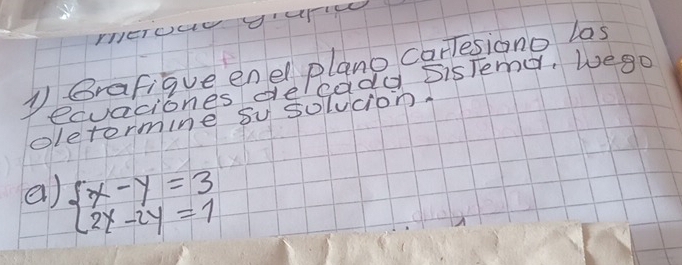 metodo grafico
1) Grafique en el plano carTesiano las
ecuaciones de cada SisTema. Luego
determine su solucion.
a) { x - y = 3
2x - 2y = 1